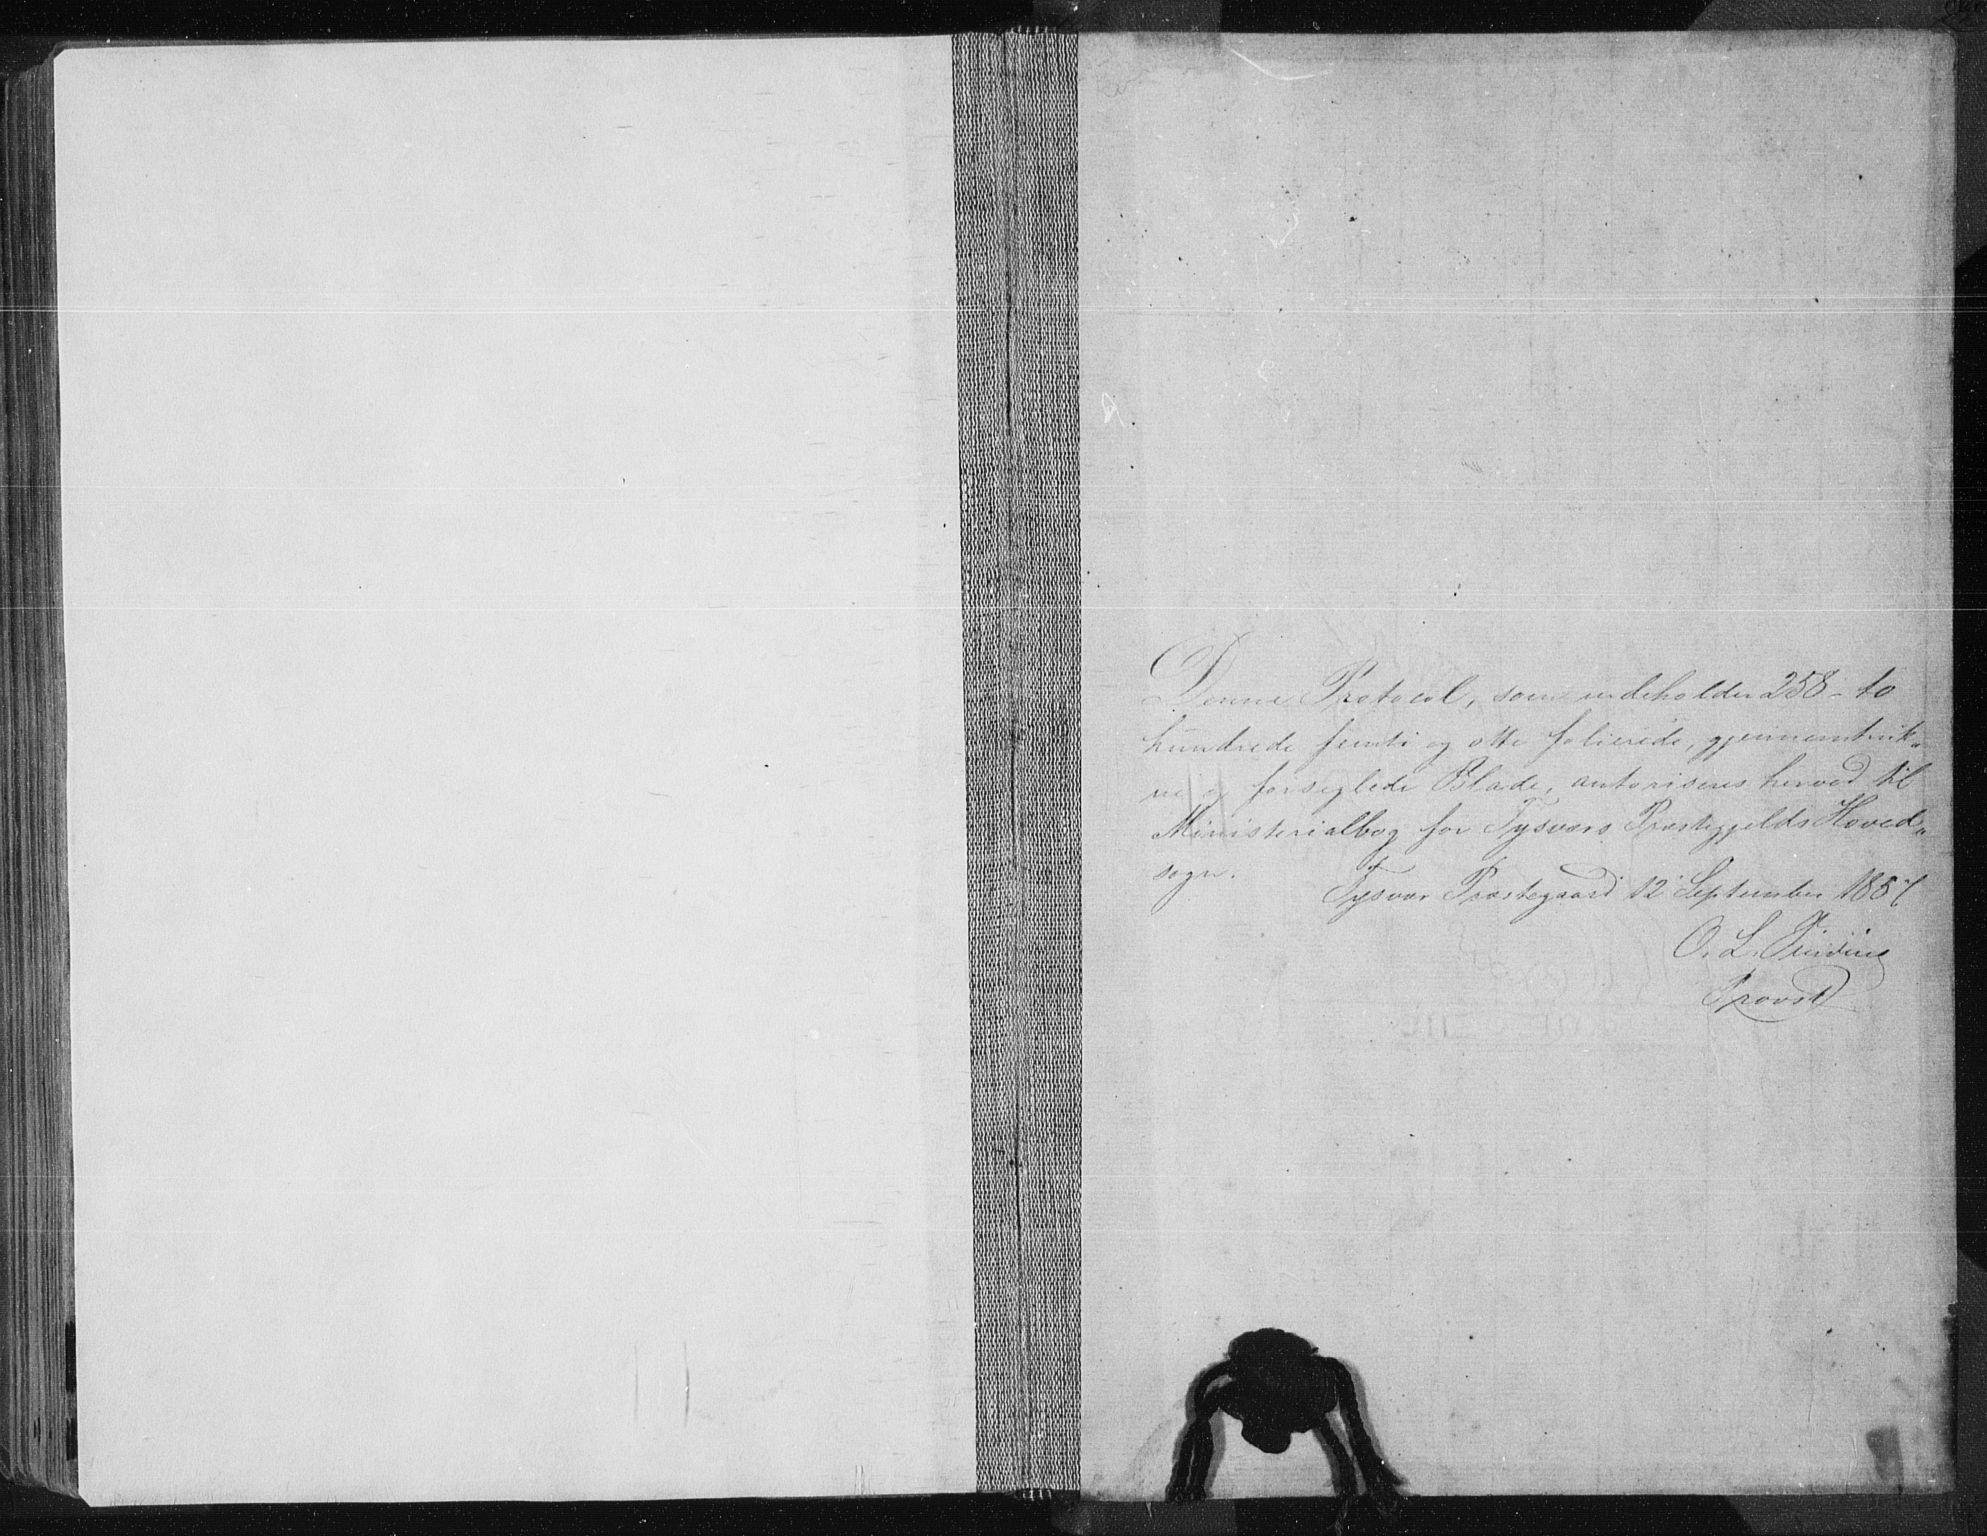 Denne Protocol, som indeholder 258 - to
hundrede femti og otte folierede, gjennemtruk„
ne og forseglede Blade, autoriseres herved til
Ministerialbog for Tysværs Præstegjelds Hoved„
sogn.
Tysvær Præstegaard 12 September 1856
O. L.
Provst